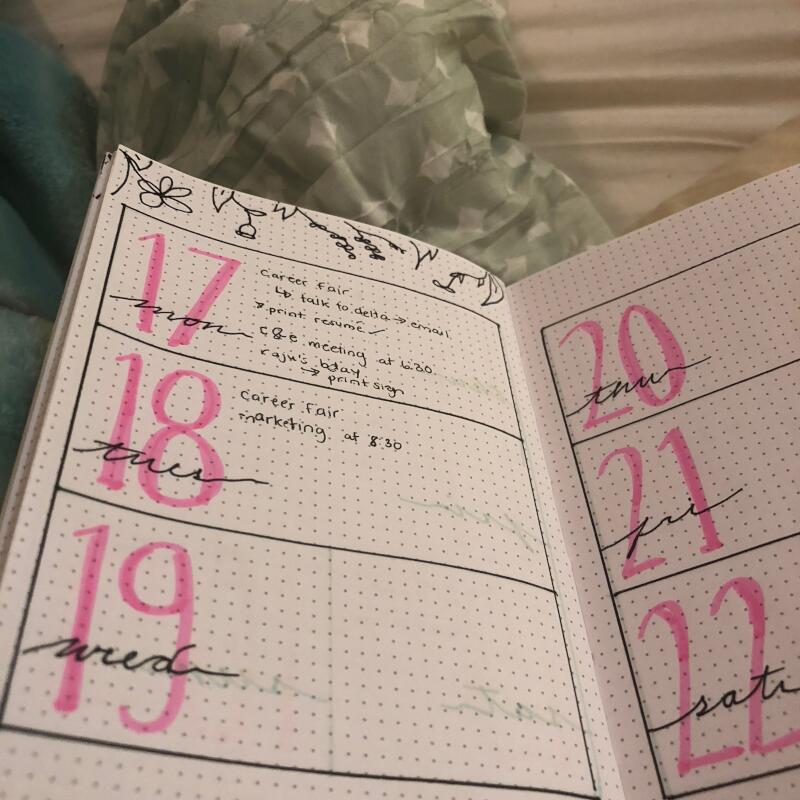 17
mon
Career Fair
↳ talk to delta → email
→ print resume ✓
C&E meeting at 6:30
raju's bday
→ print sign
18
tues
Career Fair
marketing at 8:30
19
wed
20
thu
21
fri
22
sat